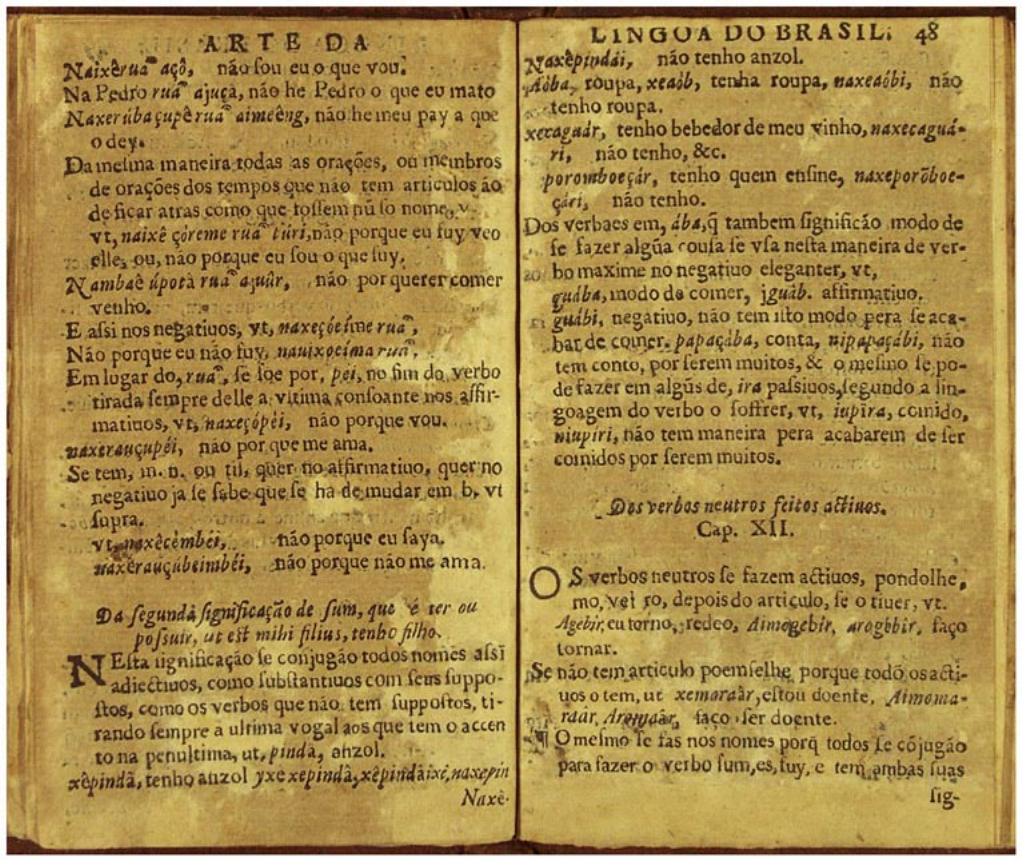 ARTE DA
Naixêruã açô, não sou eu o que vou.
Na Pedro ruã ajucà, não he Pedro o que eu mato
Naxerúbaçupê ruã aimeêng, não he meu pay a que
o dey.
Da mesma maneira todas as orações, ou membros
de orações dos tempos que não tem articulos ão
de ficar atras como que fossem nũ so nome, v.
vt, naixê çóreme ruã túri, não porque eu fuy veo
elle, ou, não porque eu sou o que fuy.
Nambaê úpotà ruã ajuûr, não por querer comer
venho.
E assi nos negatiuos, vt, naxeçóeíme ruã,
Não porque eu não fuy, nauixoeíma ruã.
Em lugar do, ruã, se soe por, pei, no fim do verbo
tirada sempre delle a vltima consoante nos affir-
matiuos, vt, naxeçópèi, não porque vou.
naxerauçupéi, não por que me ama.
Se tem, m. n. ou til, quer no affirmatiuo, quer no
negatiuo ja se sabe que se ha de mudar em b, vt
supra.
vt, naxêcèmbéi, não porque eu saya.
naxêrauçúbeimbéi, não porque não me ama.
Da segunda significação de sum, que é ter ou
possuir, ut est mihi filius, tenho filho.
NEsta significação se conjugão todos nomes assi
adiectiuos, como substantiuos com seus suppo-
stos, como os verbos que não tem suppostos, ti-
rando sempre a ultima vogal aos que tem o accen
to na penultima, ut, pindà, anzol.
xêpindà, tenho anzol yxe xepindà, xêpindà ixé, naxepin
Naxê-
LINGOA DO BRASIL. 48
Naxêpindái, não tenho anzol.
Aôba, roupa, xeaòb, tenha roupa, naxeaòbi, não
tenho roupa.
xecaguár, tenho bebedor de meu vinho, naxecaguá-
ri, não tenho, &c.
poromboeçár, tenho quem ensine, naxeporõboe-
çári, não tenho.
Dos verbaes em, ába, q̃ tambem significão modo de
se fazer algũa cousa se vsa nesta maneira de ver-
bo maxime no negatiuo eleganter, vt,
guába, modo de comer, jguàb. affirmatiuo.
guábi, negatiuo, não tem isto modo pera se aca-
bar de comer. papaçába, conta, nipapaçábi, não
tem conto, por serem muitos, & o mesmo se po-
de fazer em algũs de, ira passiuos, segundo a lin-
goagem do verbo o soffrer, vt, iupîra, comido,
niupiri, não tem maneira pera acabarem de ser
comidos por serem muitos.
Dos verbos neutros feitos actiuos.
Cap. XII.
OS verbos neutros se fazem actiuos, pondolhe,
mo, vel ro, depois do articulo, se o tiuer, vt.
Agebir, eu torno, redeo, Aimogebir, arogebir, faço
tornar.
Se não tem articulo poemselhe, porque todos os acti-
uos o tem, ut xemaraàr, estou doente, Aimoma-
raár, Aromaàr, faço ser doente.
¶ O mesmo se fas nos nomes porq̃ todos se cõjugão
para fazer o verbo sum, es, fuy, e tem ambas suas
sig-